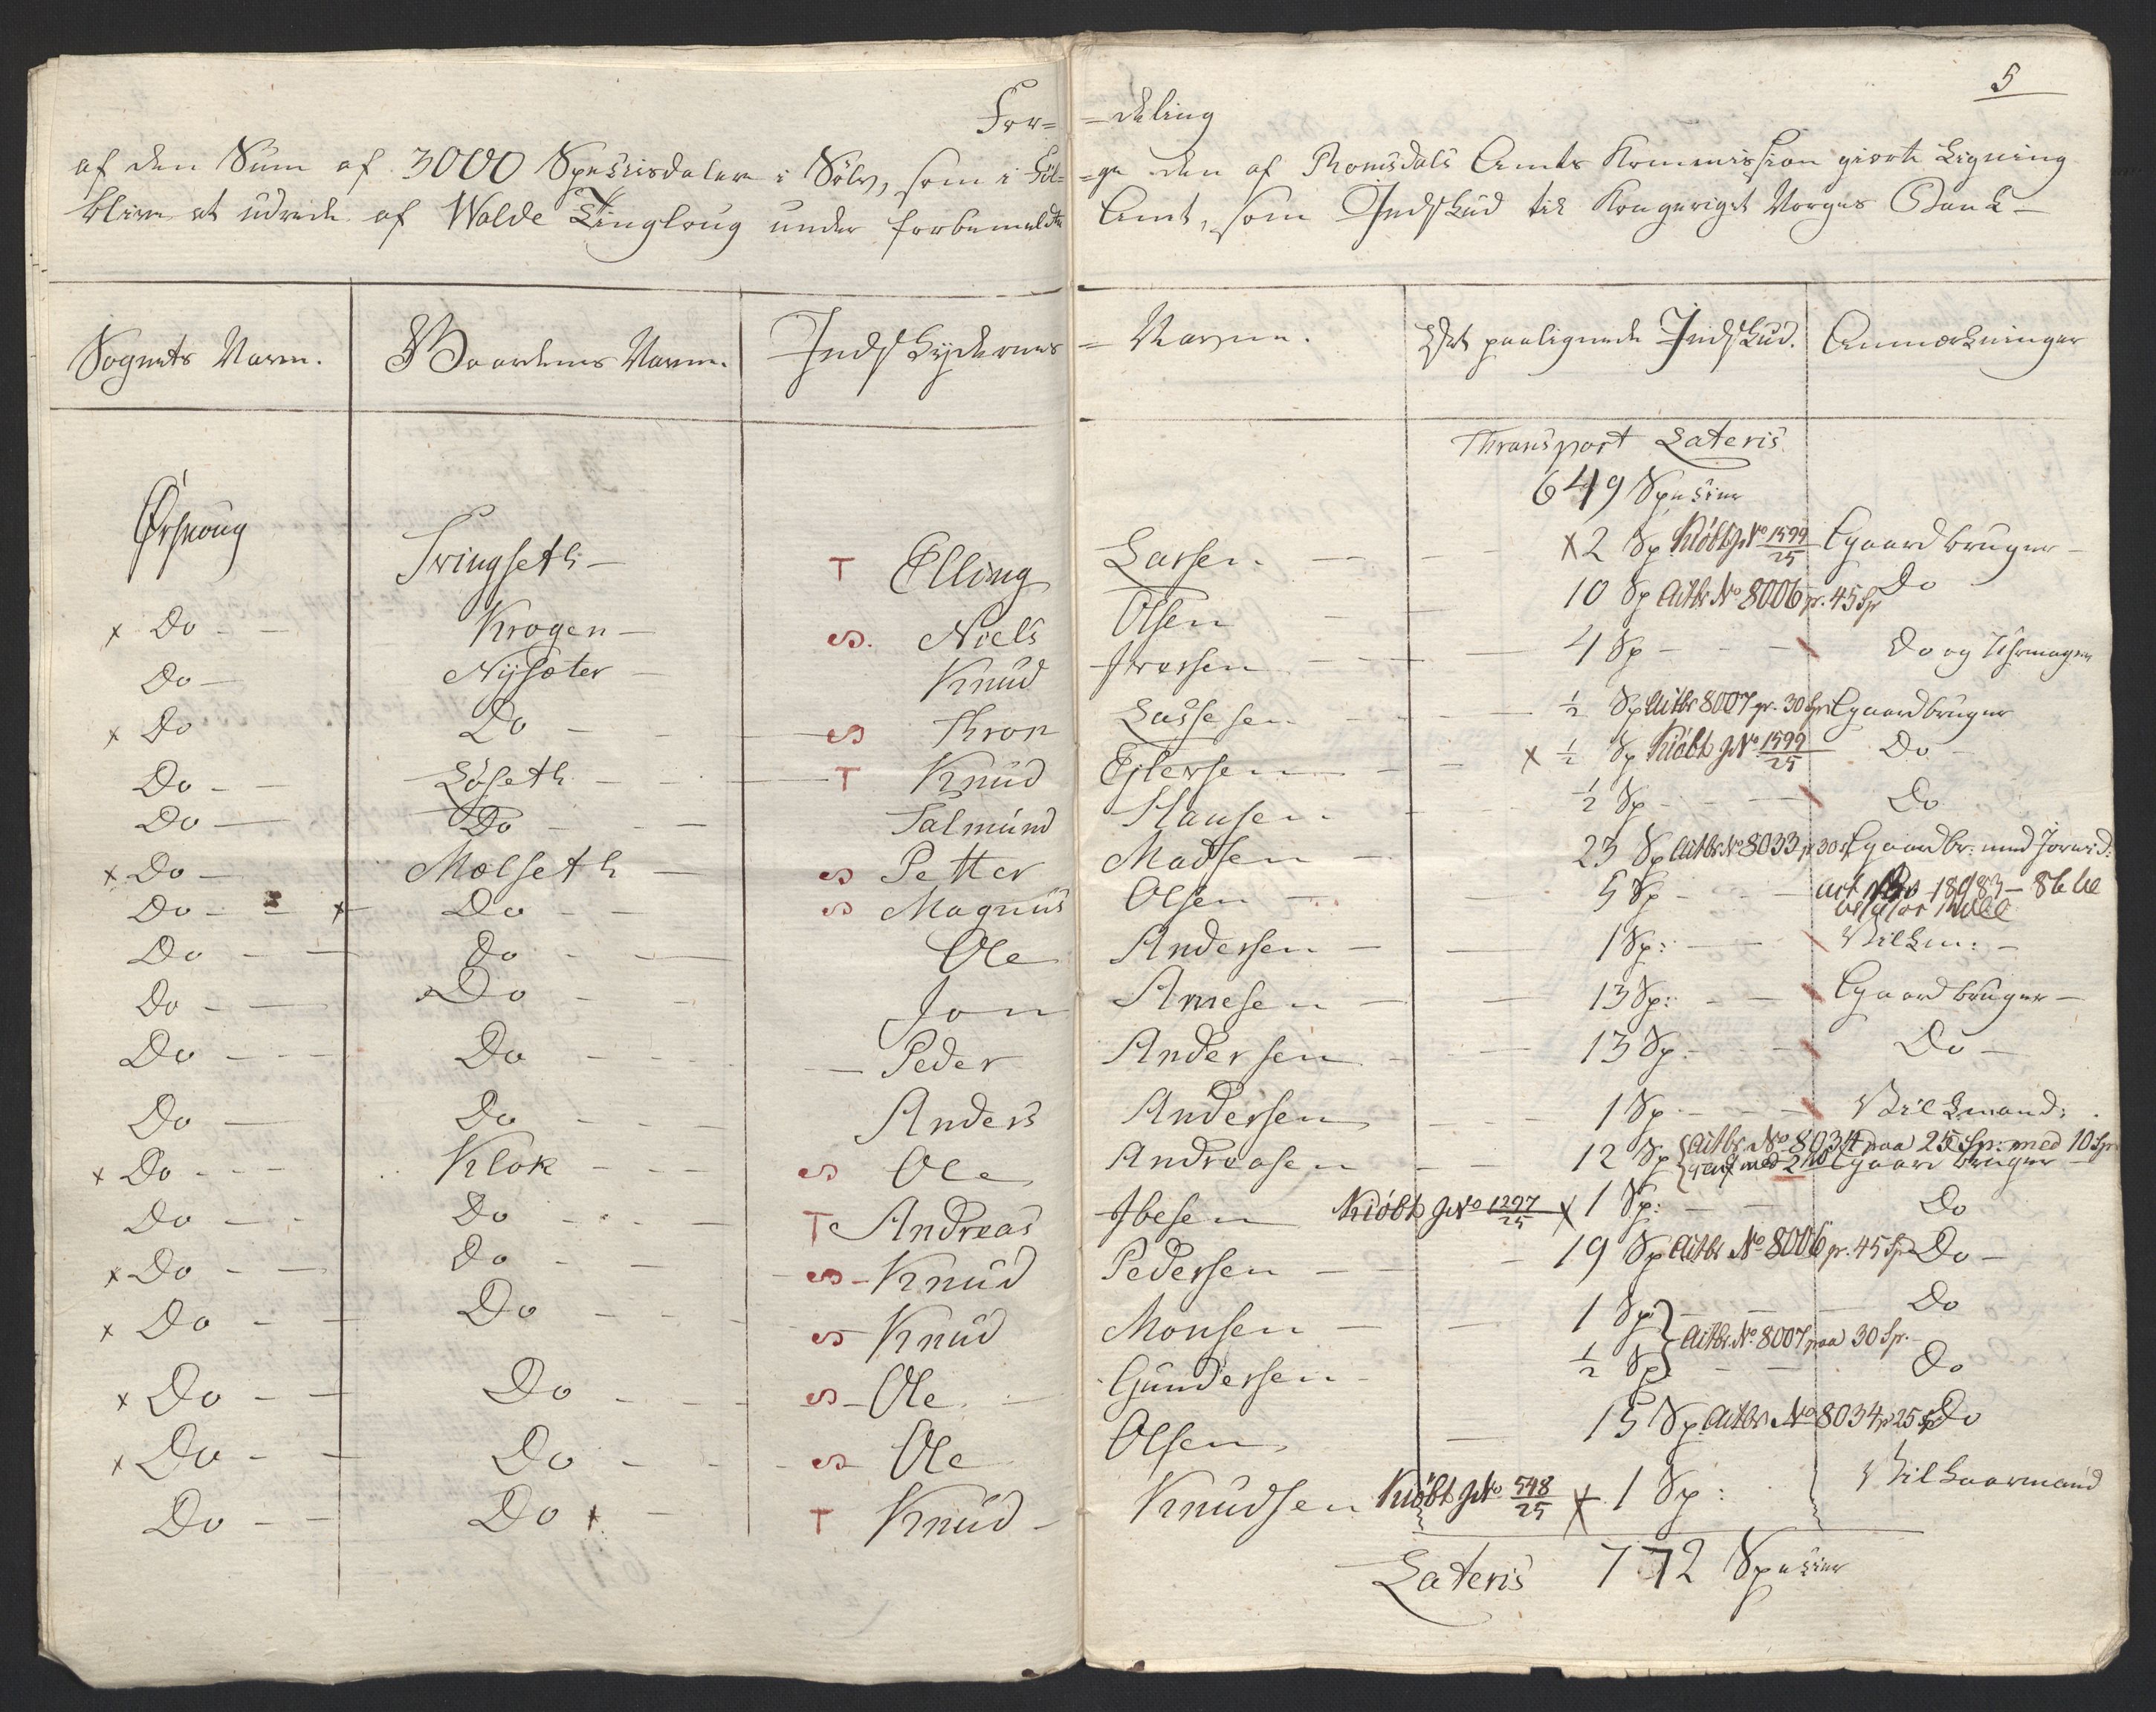 5
For= =deling
af den Sum af 3000 Spesiisdaler i Sølv, som i Føl= =ge den af Romsdals Amts Kommission giorte Ligning
bliver at udrede af Wolde Tinglaug under forbemeldte Amt, som Indskud til Kongeriget Norges Bank
Sognets Navn. Gaardenes Navn. Indskydernes = Navne. Det paalignede Indskud. Anmærkninger
Thransport Lateris
649 Spesier
Ørskoug Tringseth T Elling Larsen x 2 Sp Kiøbt g No 1599/25 Gaardbruger
x Do Krogen S. Niels Olsen 10 Sp Actbr No 8006 pr. 45 Sp Do
Do Nysæter Knud Iversen 4 Sp Do og Uhrmager
x Do Do S Thron Lassesen 1/2 Sp Actbr 8007 pr. 30 Sp Gaardbruger
Do Løseth T Knud Ejlersen x 1/2 Sp Kiøbt g No 1599/25 Do
Do Do Salmund Hansen 1/2 Sp Do
x Do Mælseth S Petter Madsen 23 Sp Actbr No 8033 p 30 Sp Gaardbr: med Jorvid:
Do x Do S Magnus Olsen 5 Sp
Do Do Ole Andersen 1 Sp: Vilkm:
Do Do Jon Arnesen 13 Sp: Gaardbruger
Do Do Peder Andersen 13 Sp. Do
Do Do Anders Andersen 1 Sp Vilkmand:
x Do Klok S Ole Andreasen 12 Sp Actbr No 8034 paa 25 Sp: med 10 Sp
Gaardbruger
Do Do T Andreas Ibesen Kiøbt g No 1297/25 x 1 Sp: Do
x Do Do S Knud Pedersen 19 Sp Actbr No 8006 pr. 45 Sp Do
x Do Do S Knud Monsen 1 Sp Do
Actbr. No 8007 paa 30 Sp.
x Do Do S Ole Gundersen 1/2 Sp Do
x Do Do S Ole Olsen 15 Sp Actbr No 8034 p 25 Sp Do
Do Do x T Knud Knudsen Kiøbt g No 548/25 x 1 Sp: Vilkaarmand
Lateris 772 Spesier